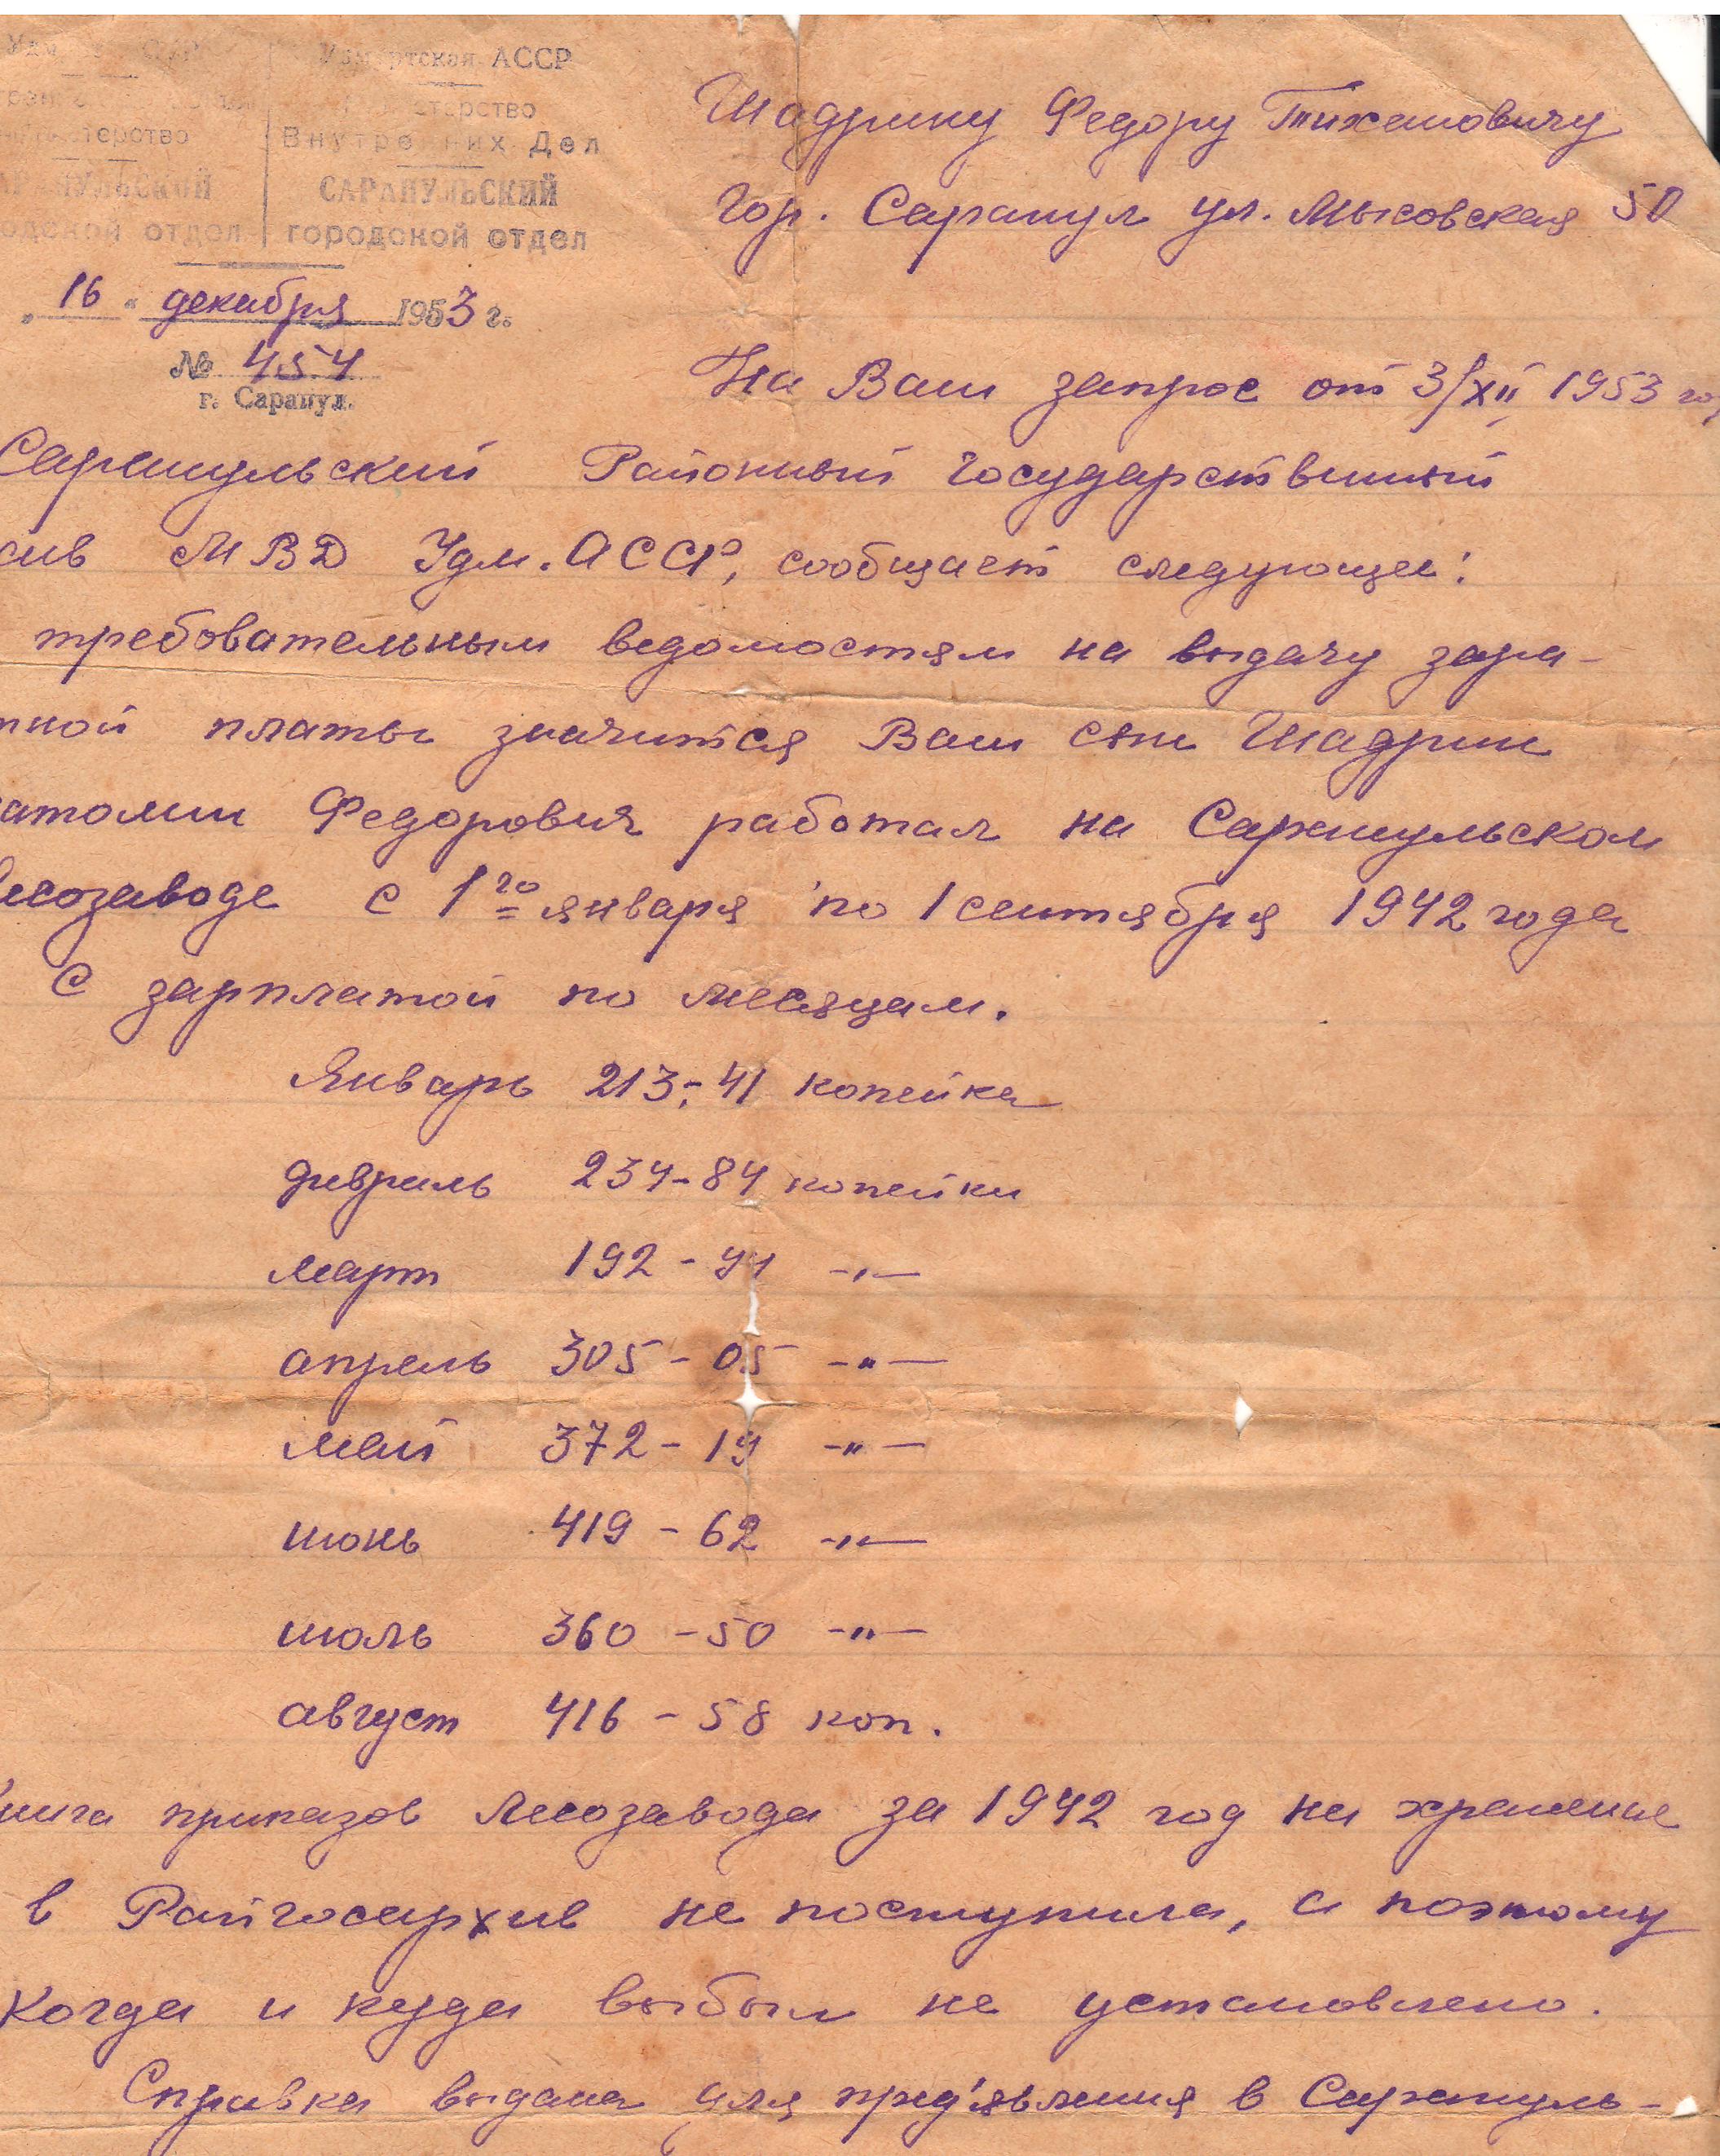 Удмуртская АССР
Министерство
Внутренних Дел
САРАПУЛЬСКИЙ
городской отдел
„16“ декабря 1953 г.
№ 454
г. Сарапул.
Шадрину Федору Тихановичу
Гор. Сарапул ул. Мысовская 50
На Ваш запрос от 3/XII 1953 го
Сарапульский Районный Государственный
ив МВД Удм. АССР, сообщает следующее:
требовательным ведомостям на выдачу зара-
тной платы значится Ваш сын Шадрин
атолии Федорович работал на Сарапульском
Лесозаводе с 1го января по 1 сентября 1942 года
С зарплатой по месяцам.
Январь 213-41 копейка
февраль 234-84 копейки
март 192-91 -"-
апрель 305-05 -"-
май 372-19 -"-
июнь 419-62 -"-
июль 360-50 -"-
август 416-58 коп.
Книга приказов Лесозавода за 1942 год на хранение
в Райгосархив не поступила, а поэтому
Когда и куда выбыл не установлено.
Справка выдана для пред'явления в Сарапуль-